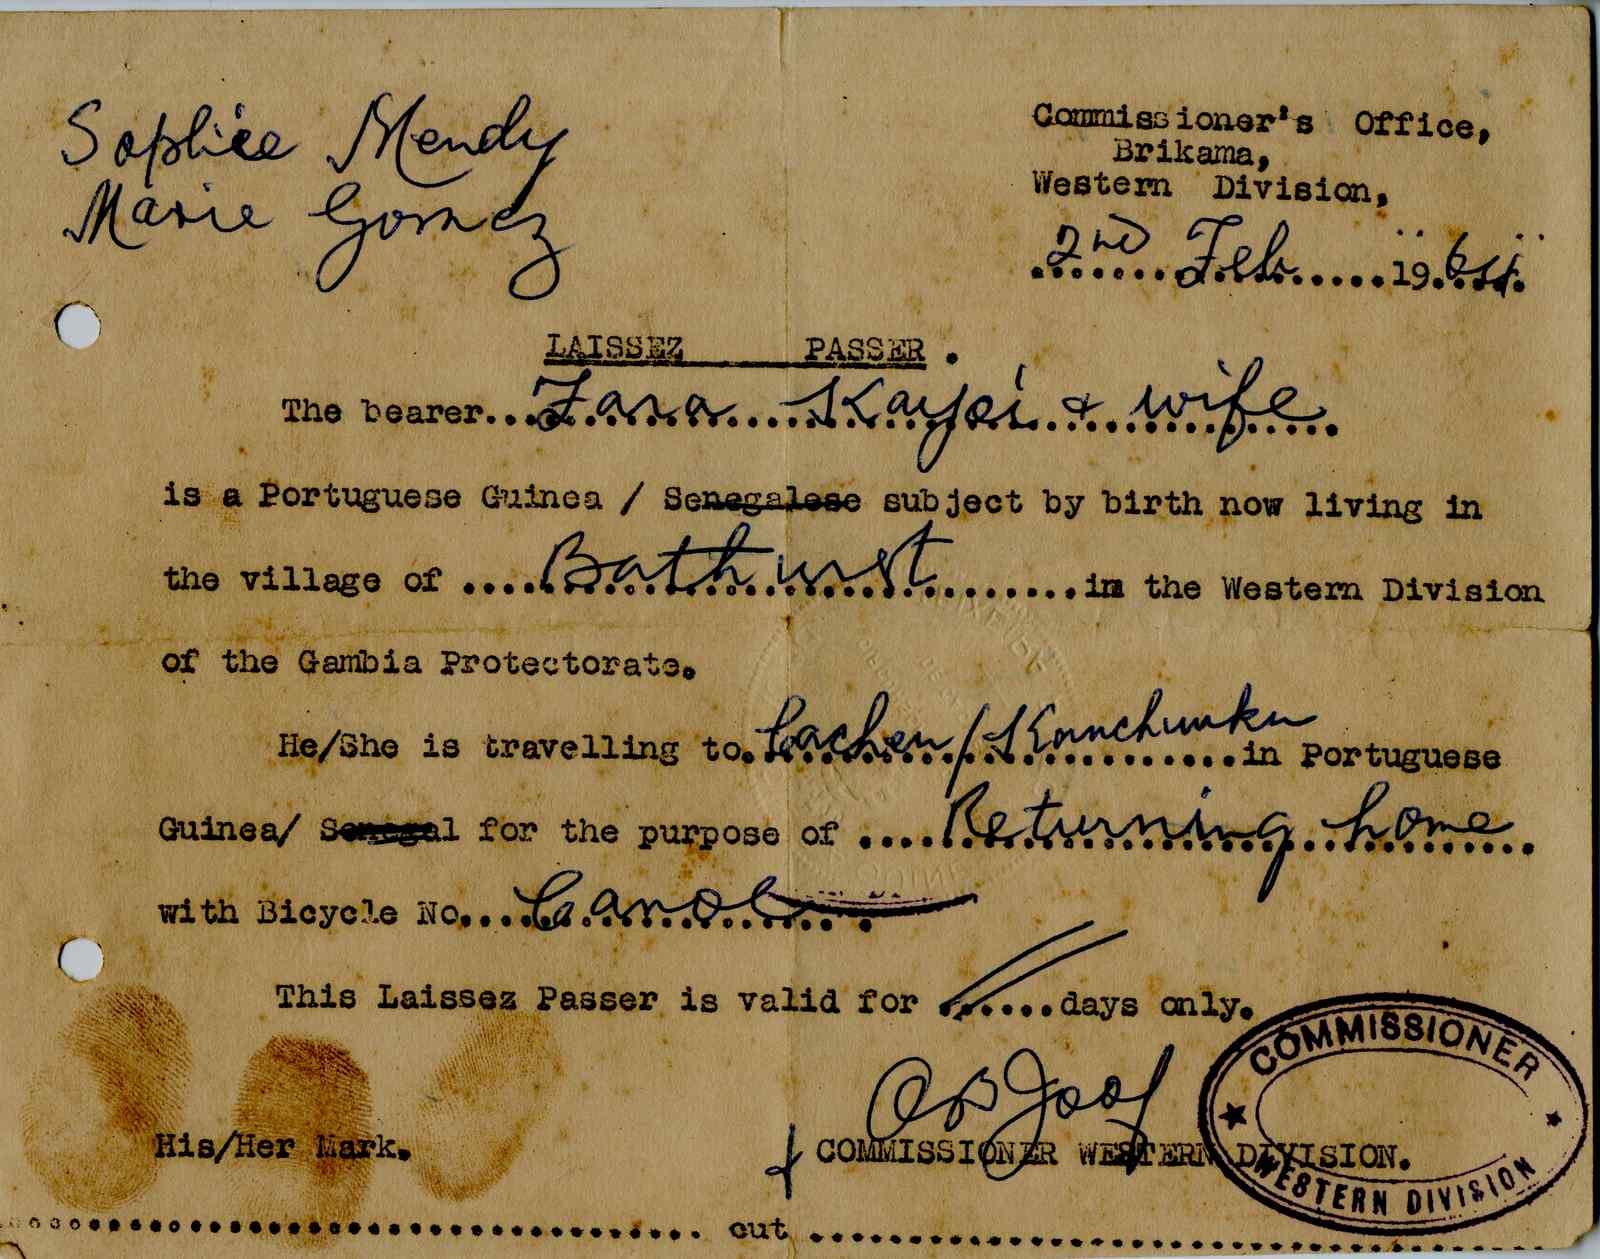 Sophie Mendy
Marie Gomez
Commissioner's Office,
Brikama,
Western Division,
2nd Feb 19
LAISSEZ PASSER.
The bearer... & wife
is a Portuguese Guinea / Senegalese subject by birth now living in
the village of .... Bathurst .... in the Western Division
of the Gambia Protectorate.
He/She is travelling to. Cacheu / Kanchunku in Portuguese
Guinea/ Senegal for the purpose of .... Returning home
with Bicycle No.... Canoe
This Laissez Passer is valid for ..... days only.
COMMISSIONER
WESTERN DIVISION
His/Her Mark.
COMMISSIONER WESTERN DIVISION.
cut